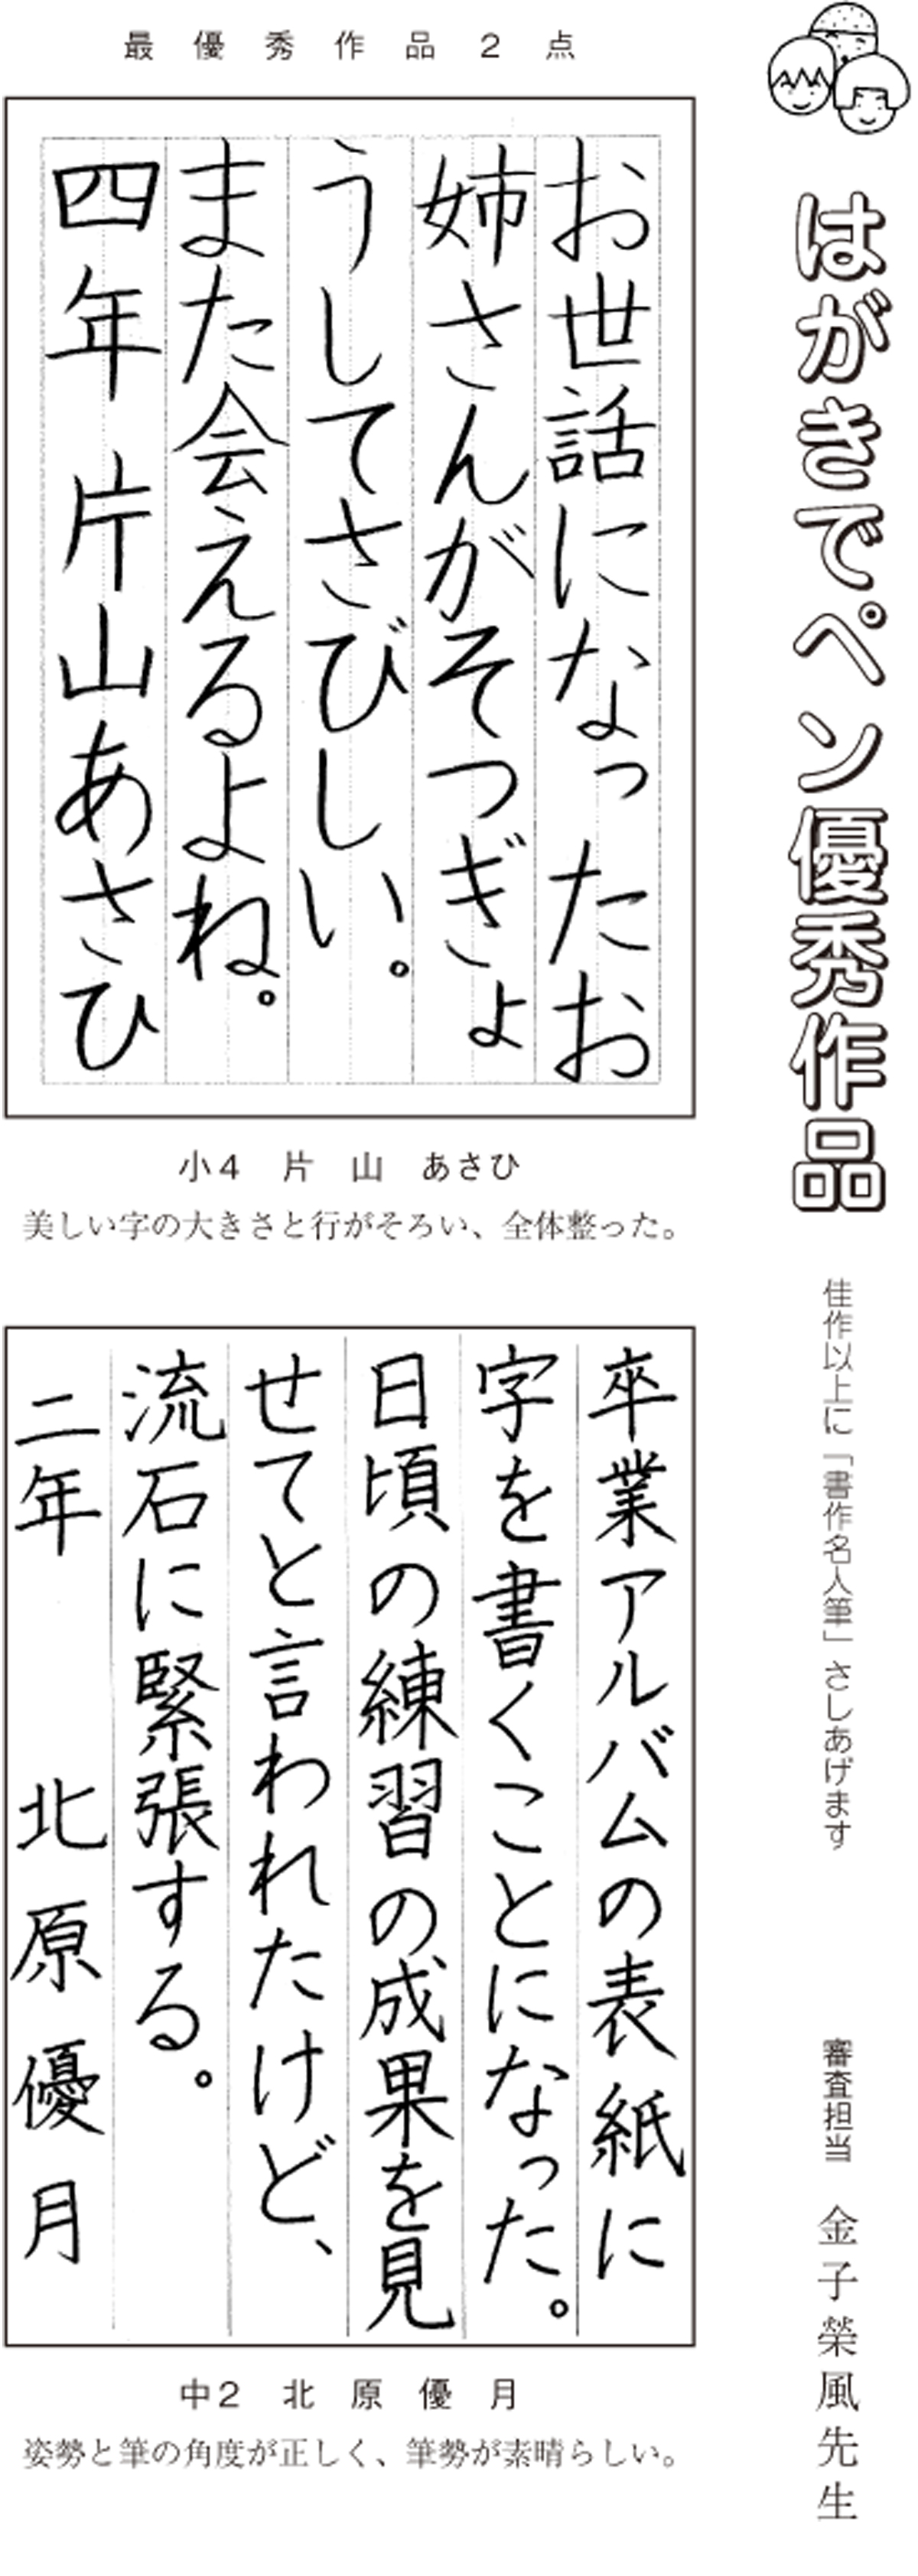 はがきでペン優秀作品
佳作以上に「書作名人筆」さしあげます
審査担当 金子榮風先生
最優秀作品2点
お世話になったお
姉さんがそつぎょ
うしてさびしい。
また会えるよね。
四年 片山あさひ
小4 片山 あさひ
美しい字の大きさと行がそろい、全体整った。
卒業アルバムの表紙に
字を書くことになった。
日頃の練習の成果を見
せてと言われたけど、
流石に緊張する。
二年 北原優月
中2 北原優月
姿勢と筆の角度が正しく、筆勢が素晴らしい。